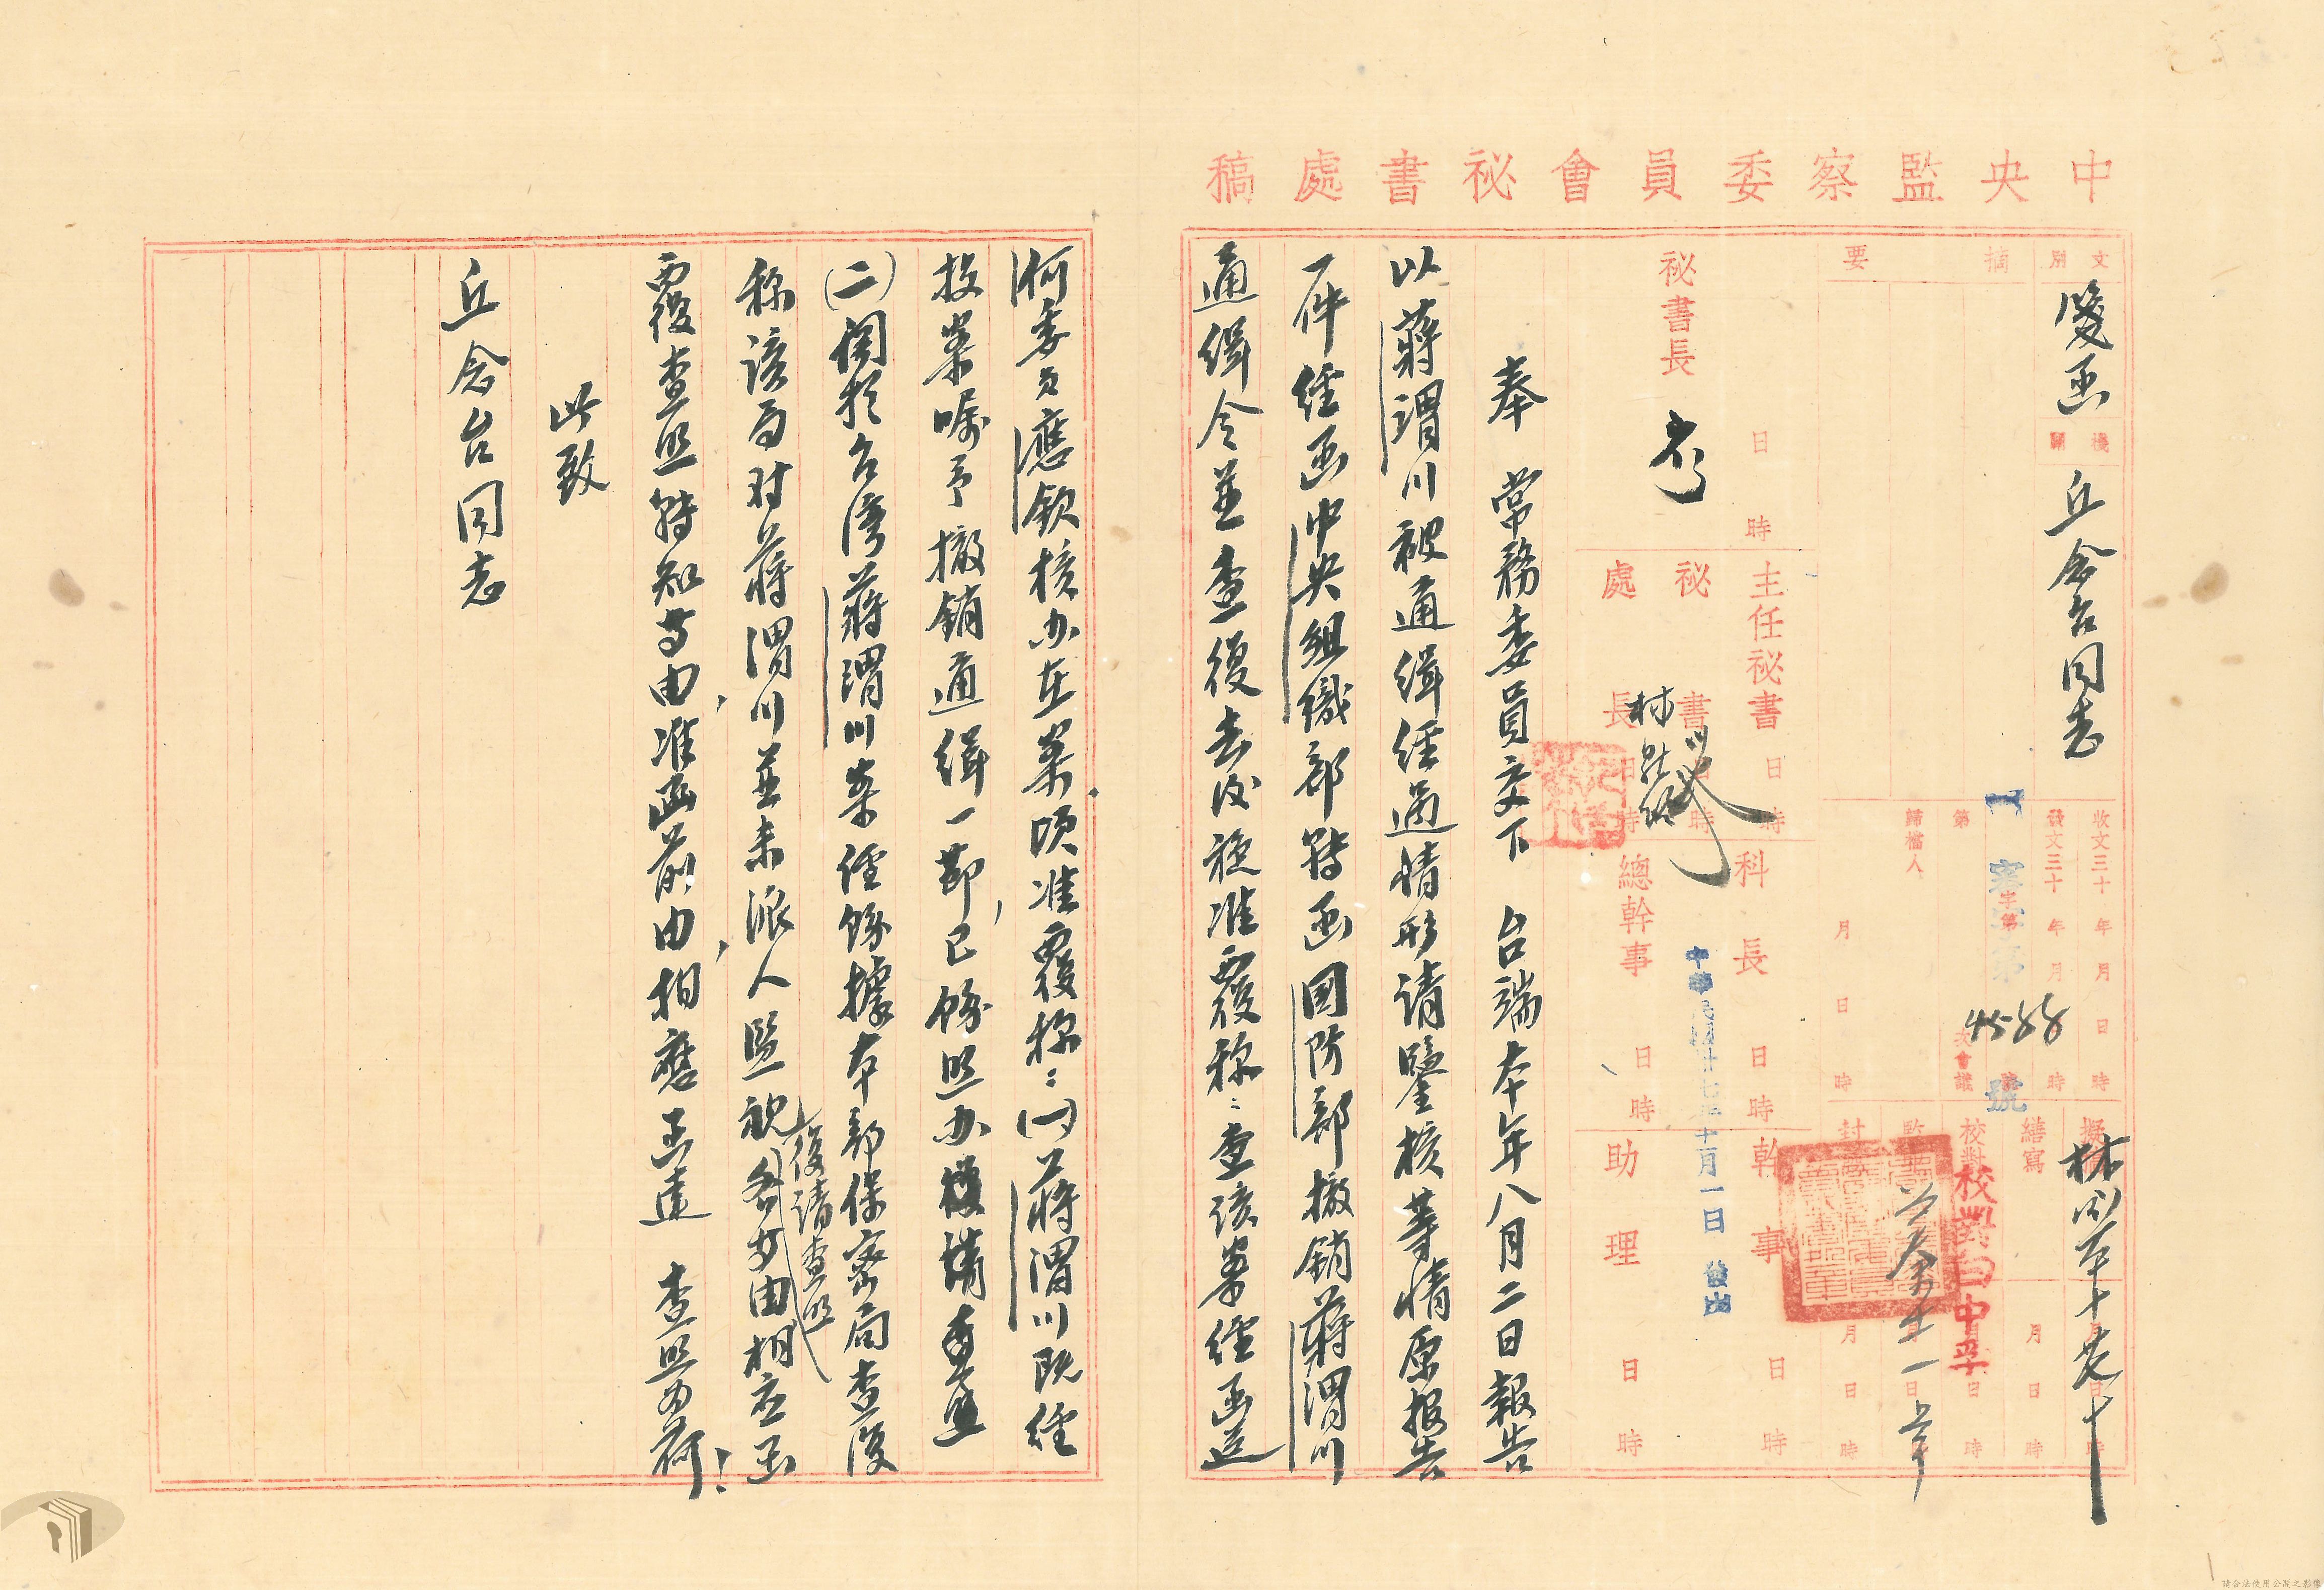 中央監察委員會祕書處稿
文別 箋函 機關 丘念台同志
摘要
收文三十年月日時
發文三十年月日時
字第4588號
第次會議
歸檔人
繕寫 月日時
校對 月日時
校對白中孚
封 月日時
祕書長 日時
主任祕書 日時
祕書 時
處長 日時
科長 日時
總幹事 日時
幹事 日時
助理 日時
中華民國卅七年十一月一日發出
奉 常務委員交下 台端本年八月二日報告
以蔣渭川被通緝經過情形請鑒核等情原報告
一件經函中央組織部轉函國防部撤銷蔣渭川
通緝令並查復去後茲准覆稱:查該案經函送
何委員應欽核办在案頃准覆称:(一)蔣渭川既經
投案嘱予撤銷通緝一節,已飭照办
(二)関於台湾蔣渭川案經飭據本部保密局查復
称該局对蔣渭川並未派人監視復請查照各等由相应函
覆查照轉知等由,准函前由,相應函達 查照為荷!
此致
丘念台同志
請合法使用公開之影像